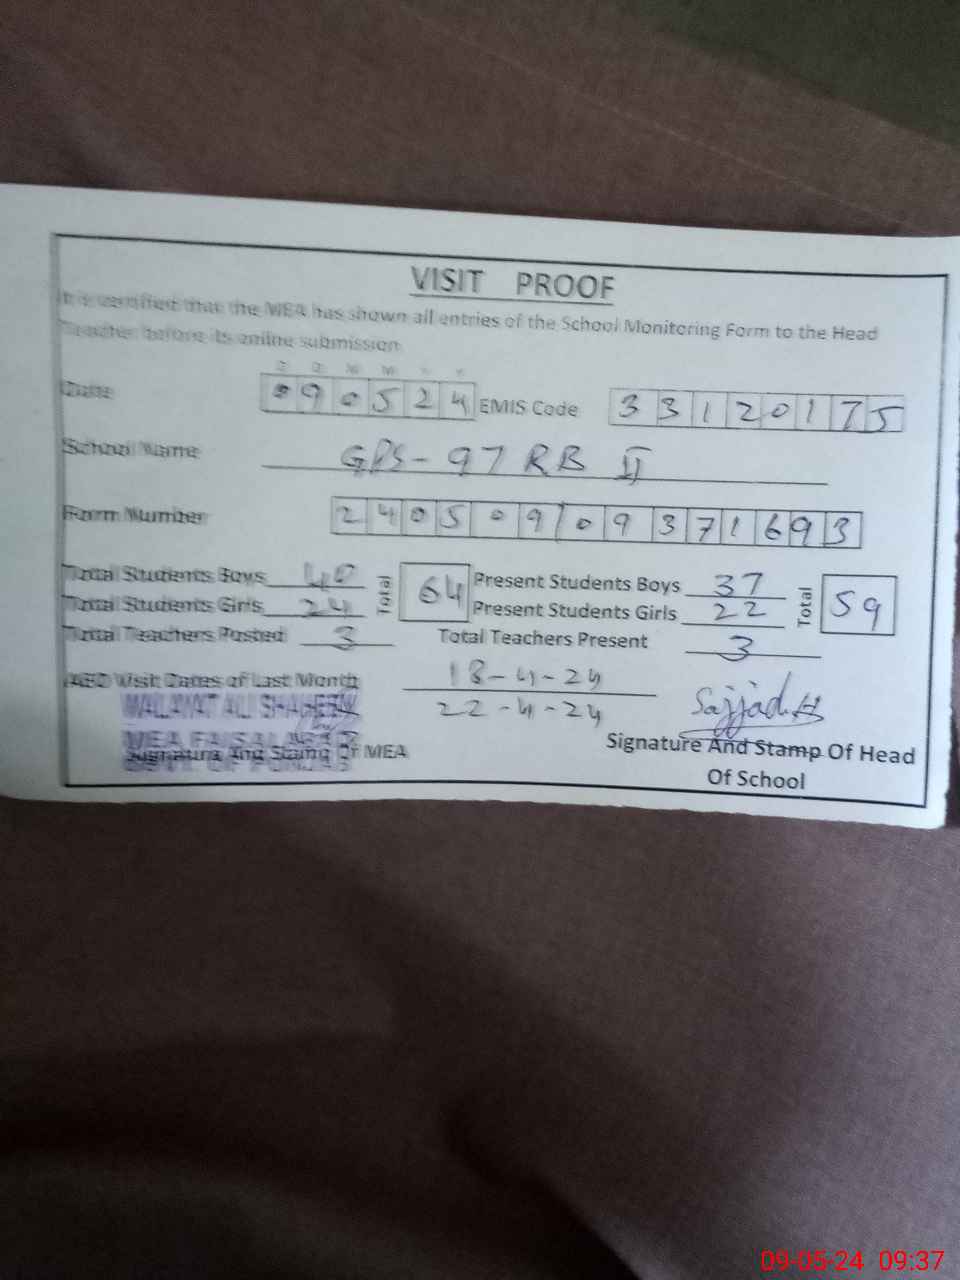 VISIT PROOF
It is certified that the MEA has shown all entries of the School Monitoring Form to the Head
Teacher before its online submission
D D M M Y Y
Date 090524 EMIS Code 33120175
School Name GPS-97 RB II
Form Number 24050909371693
Total Students Boys 40 Total 64 Present Students Boys 37 Total 59
Total Students Girls 24 Present Students Girls 22
Total Teachers Posted 3 Total Teachers Present 3
AEO Visit Dates of Last Month 18-4-24
22-4-24
ALI SHAHEEN Sajjad
MEA FAISALABAD
Signature And Stamp Of MEA Signature And Stamp Of Head
Of School
09-05-24 09:37